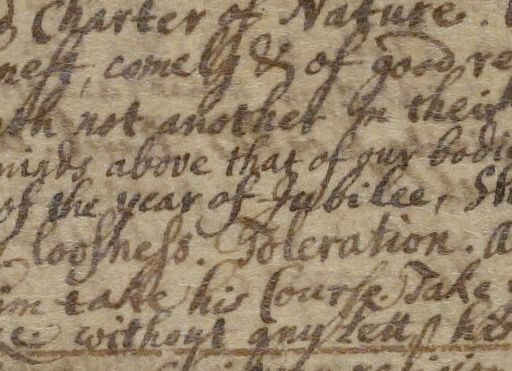 Charter of Nature.
nest, comely & of good re
not another in their
minds above that of our bodi
of the year of Jubilee, Sh
loosness. Toleration. A
im take his Course. Take
ce. without any Lett, his